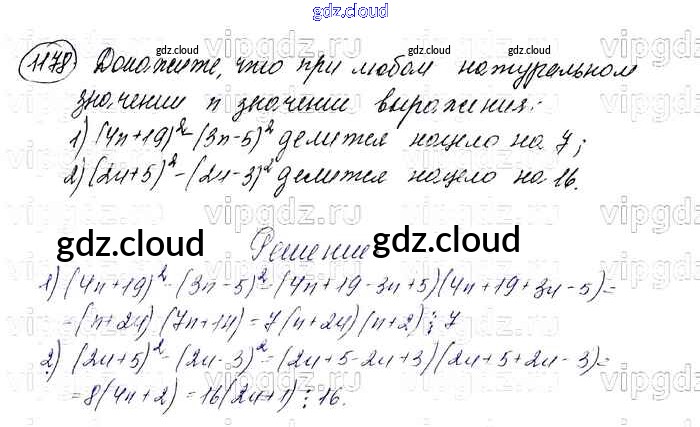 gdz.cloud
1178) Докажите, что при любом натуральном
значении n значении выражения:
1) (4n+19)²-(3n-5)² делится нацело на 7;
2) (2n+5)²-(2n-3)² делится нацело на 16.
Решение
1) (4n+19)²-(3n-5)²=(4n+19-3n+5)(4n+19+3n-5)=
=(n+24)(7n+14)=7(n+24)(n+2)⋮7
2) (2n+5)²-(2n-3)²=(2n+5-2n+3)(2n+5+2n-3)=
=8(4n+2)=16(2n+1)⋮16.
gdz.cloud
gdz.cloud
gdz.cloud
gdz.cloud
gdz.cloud
gdz.cloud
gdz.cloud
gdz.cloud
vipgdz.ru
vipgdz.ru
vipgdz.ru
vipgdz.ru